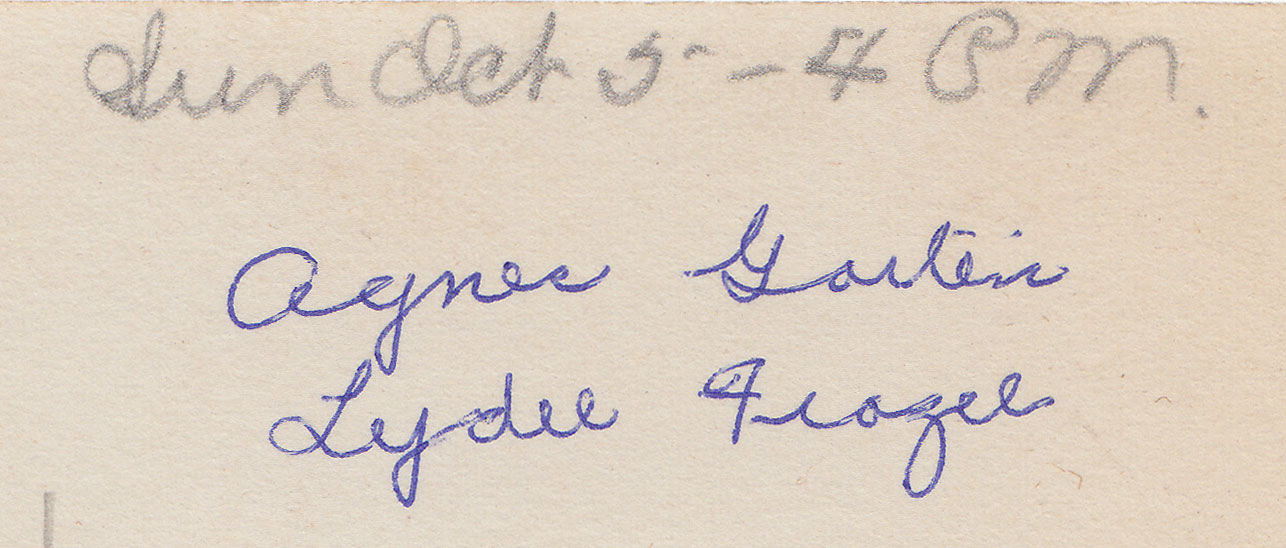 Sun Oct 5 - 4 P.M.
Agnes Gostein
Lydee Frazee